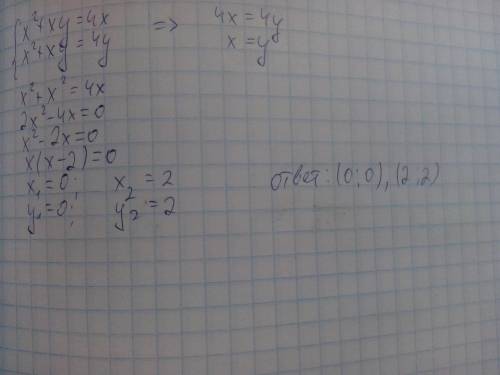 {x²+xy=4x => 4x=4y
{x²+xy=4y x=y
x²+x²=4x
2x²-4x=0
x²-2x=0
x(x-2)=0
x₁=0; x₂=2
y₁=0; y₂=2
ответ: (0;0), (2,2)